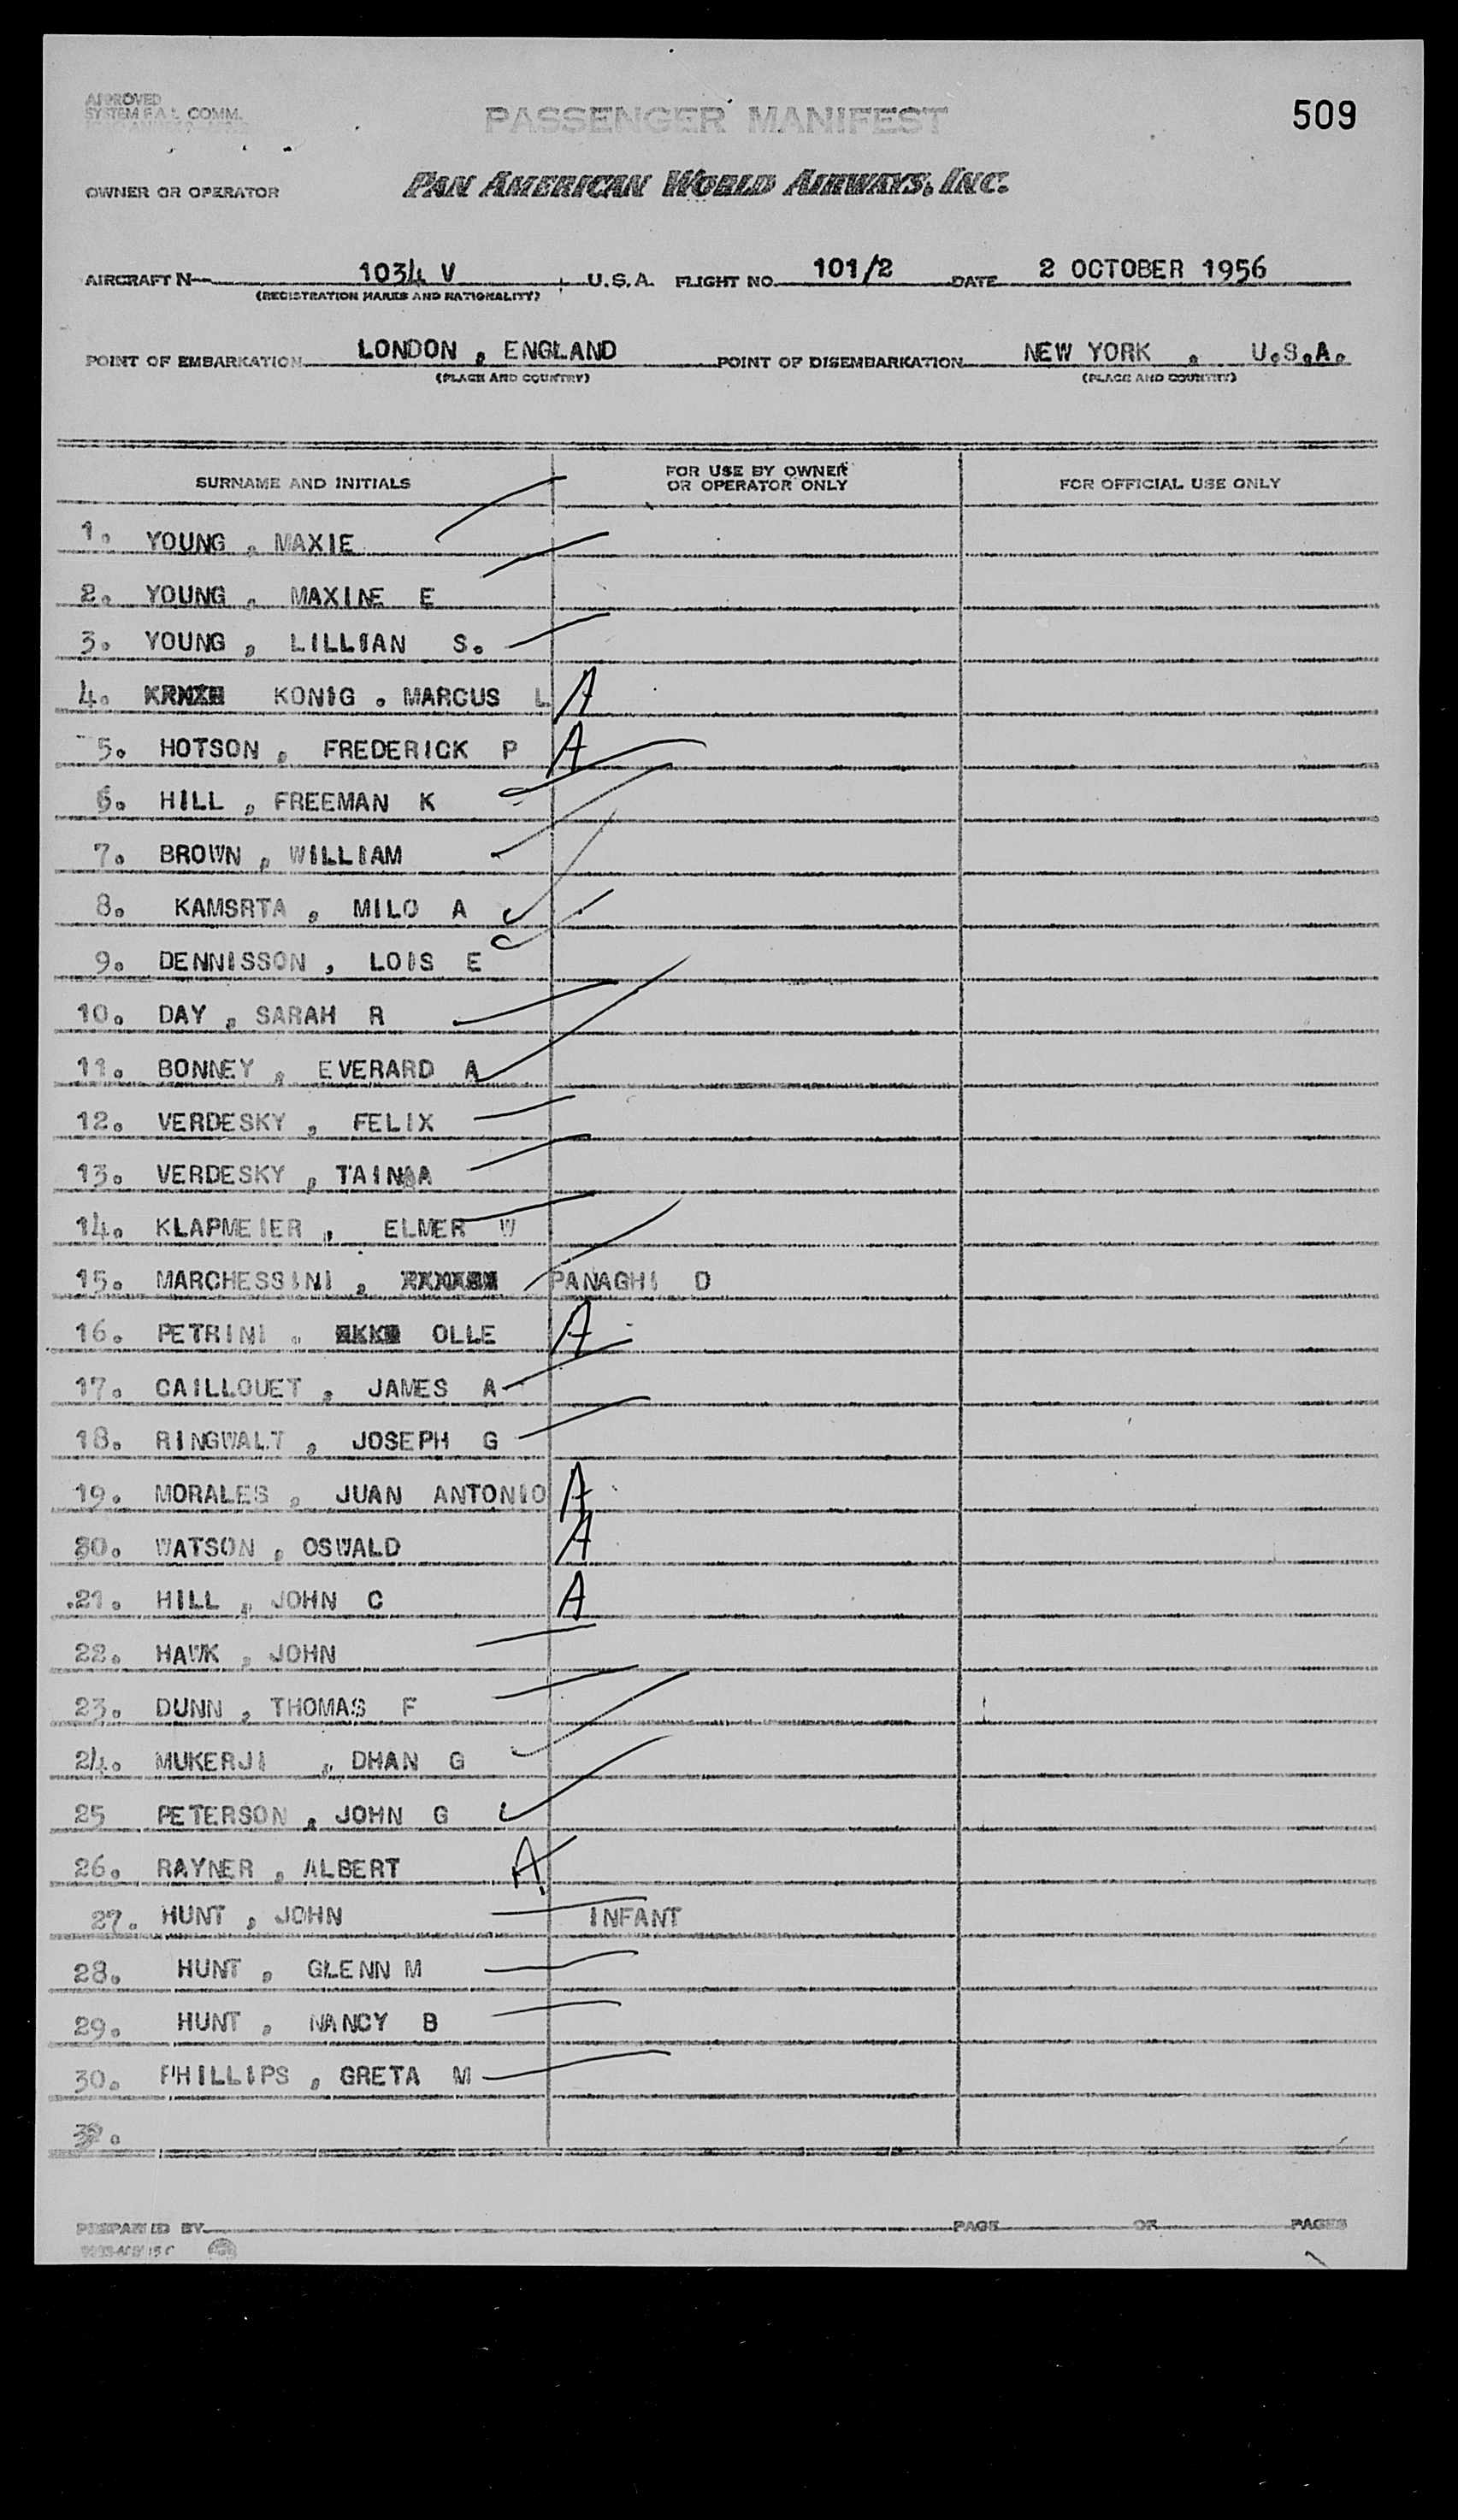 APPROVED
SYSTEM F.A.L. COMM.
PASSENGER MANIFEST
509
OWNER OR OPERATOR
PAN AMERICAN WORLD AIRWAYS, INC.
AIRCRAFT N 1034 V U.S.A. FLIGHT NO. 101/2 DATE 2 OCTOBER 1956
(REGISTRATION MARKS AND NATIONALITY)
POINT OF EMBARKATION LONDON , ENGLAND POINT OF DISEMBARKATION NEW YORK , U.S.A.
(PLACE AND COUNTRY) (PLACE AND COUNTRY)
SURNAME AND INITIALS FOR USE BY OWNER OR OPERATOR ONLY FOR OFFICIAL USE ONLY
1. YOUNG , MAXIE
2. YOUNG , MAXINE E
3. YOUNG , LILLIAN S.
4. KONIG . MARCUS L A
5. HOTSON , FREDERICK P A
6. HILL , FREEMAN K
7. BROWN , WILLIAM
8. KAMSRTA , MILO A
9. DENNISSON , LOIS E
10. DAY , SARAH R
11. BONNEY , EVERARD A
12. VERDESKY , FELIX
13. VERDESKY , TAINAA
14. KLAPMEIER , ELMER W
15. MARCHESSINI , PANAGHI D
16. PETRINI . OLLE A
17. CAILLOUET , JAMES A
18. RINGWALT , JOSEPH G
19. MORALES , JUAN ANTONIO A
20. WATSON , OSWALD A
21. HILL , JOHN C A
22. HAWK , JOHN
23. DUNN , THOMAS F
24. MUKERJI , DHAN G
25 PETERSON , JOHN G
26. RAYNER , ALBERT A
27. HUNT , JOHN INFANT
28. HUNT , GLENN M
29. HUNT , NANCY B
30. PHILLIPS , GRETA M
PREPARED BY PAGE OF PAGES